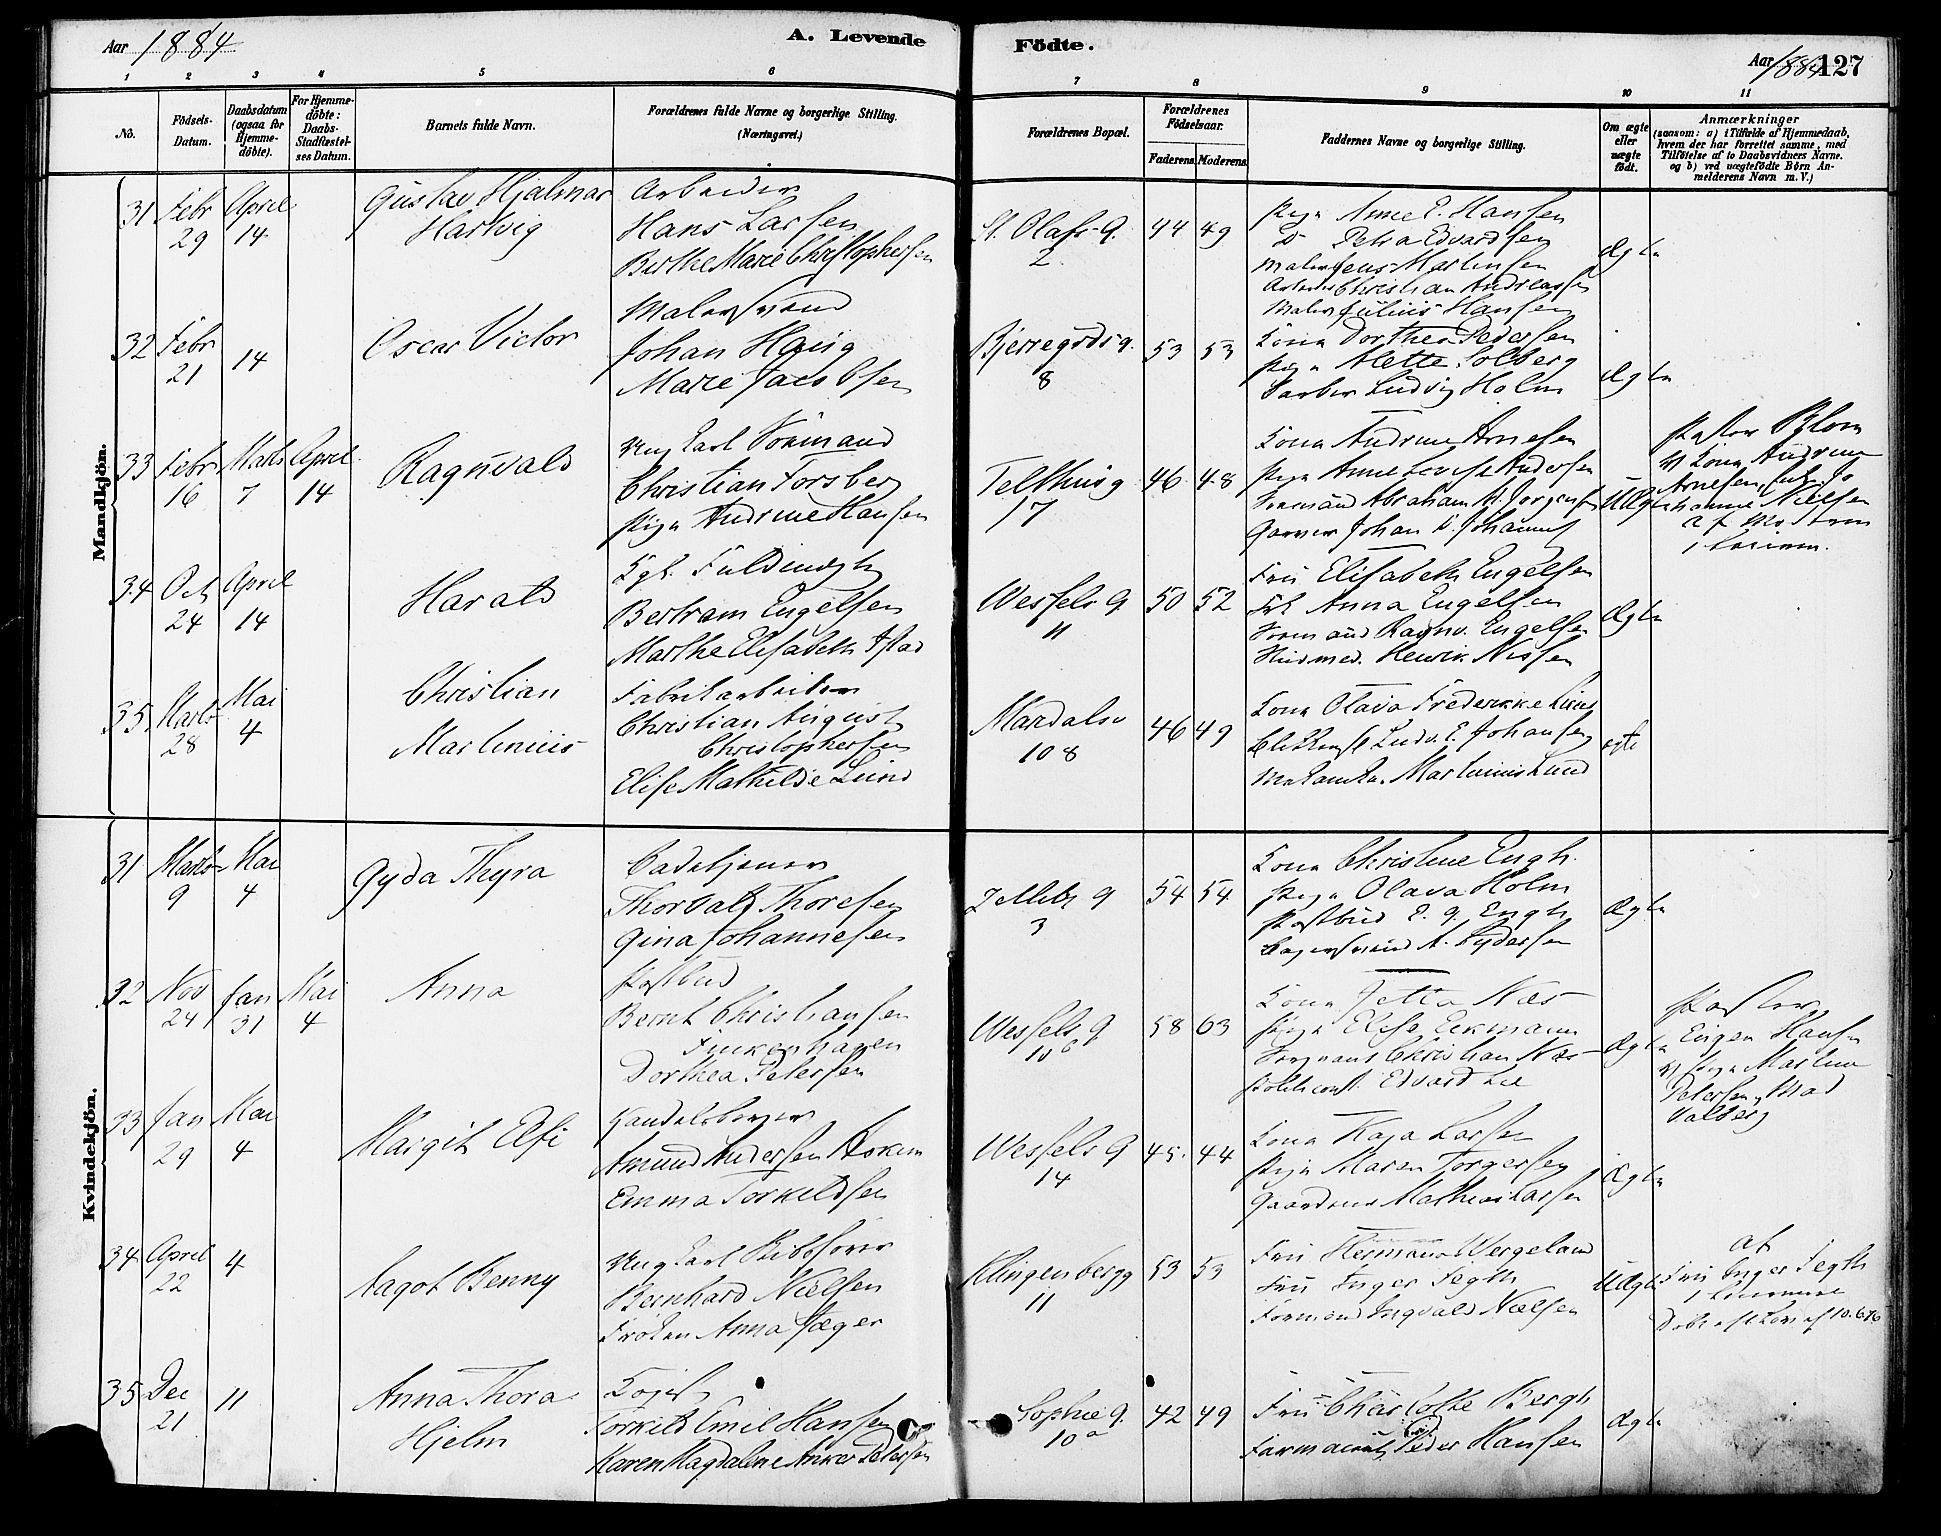 Aar 1884
A. Levende
Födte.
Aar 1884 127
1 2 3 4 5 6 7 8 9 10 11
No.
Födsels-
Datum.
Daabsdatum
(ogsaa for
Hjemme-
döbte).
For Hjemme-
döbte:
Daabs-
Stadfæstel-
ses Datum.
Barnets fulde Navn.
Forældrenes fulde Navne og borgerlige Stilling.
(Næringsvei.)
Forældrenes Bopæl.
Forældrenes
Födselsaar.
Faderens. Moderens.
Faddernes Navne og borgerlige Stilling.
Om ægte
eller
uægte
födt.
Anmærkninger
(saasom: a) i Tilfælde af Hjemmedaab,
hvem der har forrettet samme, med
Tilföielse af to Daabsvidners Navne.
og b) ved uægtefödte Börn An-
melderens Navn m. V.)
Mandkjön.
31 Febr 29 April 14
Gustav Hjalmar
Hartvig
Arbeider
Hans Larsen
Berthe Marie Christophersen
St. Olafs G.
2
44 49
Pige Anne E. Hansen
D Petra Edvardsen
Maler Jens Martinsen
Arbeider Christian Andreassen
Maler Julius Hansen
Ægte
32 Febr 21 14
Oscar Victor
Malersvend
Johan Haug
Marie Jacobsen
Bjerregdsg.
8
53 53
Kona Dorthea Pedersen
Pige Alette Solberg
Garber Ludvig Holm
Ægte
33 Febr 16 Marts 7 April 14
Ragnvald
Ungkarl Formand
Christian Forsberg
Pige Andrine Hansen
Telthusg
17
46 48
Kona Andrine Arnesen
Pige Anne Lovise Andersen
Formand Abraham A. Jörgensen
Garver Johan D. Johannes
Uægte
Pastor Blom
Kona Andrine
Arnesen
Nielsen
34 Oct 24 April 14
Harald
Kgl. Fuldmægtig
Bertram Engelsen
Marthe Elisabeth
Wessels G
11
50 52
Fru Elisabeth Engelsen
Frk Anna Engelsen
Formand Ragnv. Engelsen
Henrik Nissen
Ægte
35 Marts 28 Mai 4
Christian
Martinius
Fabrikarbeider
Christian August
Christophersen
Elise Mathilde Lund
Maridalsv
108
46 49
Kona Olava Frederikke Lund
Ludv. E. Johansen
Martinius Lund
ægte
Kvindekjön.
31 Marts 9 Mai 4
Gyda Thyra
Thorvald Thoresen
Gina Johannesen
3
54 54
Kona Christine Engh.
Pige Olava Holm
Postbud E. G. Engh
Bagersvend A. Lydersen
Ægte
32 Nov 24 Jan 31 Mai 4
Anna
Postbud
Bernt Christiansen
Finkenhagen
Dorthea Petersen
Wessels G
10 b
58 63
Kona Jette Næs
Pige Elise Eckmann
Christian Næs
Politconst. Edvard Lie
Ægte
Pastor
Eugen Hansen
Pige Martine
Petersen, Mad
Valberg
33 Jan 29 Mai 4
Margit Elfi
Handelsborger
Amund Andersen Askim
Emma Torkildsen
Wessels G
14
45. 44
Kona Kaja Larsen
Pige Maren Torgersen
Gaardeier Mathias Larsen
Ægte
34 April 22 4
Aagot Benny
Ungkarl
Bernhard Nielsen
Fröken Anna Jæger
Klingenbergg
11
53 53
Fru Hermana Wergeland
Fru Inger Segth
Formand Ingvald Nielsen
Uægte
at
Fru Inger Segth
35 Dec 21 11
Anna Thora
Hjelm
Torkild Emil Hansen
Karen Magdalene Anker Petersen
Sophie G.
10 a
42 49
Fru Charlotte Bergh
Peder Hansen
Ægte